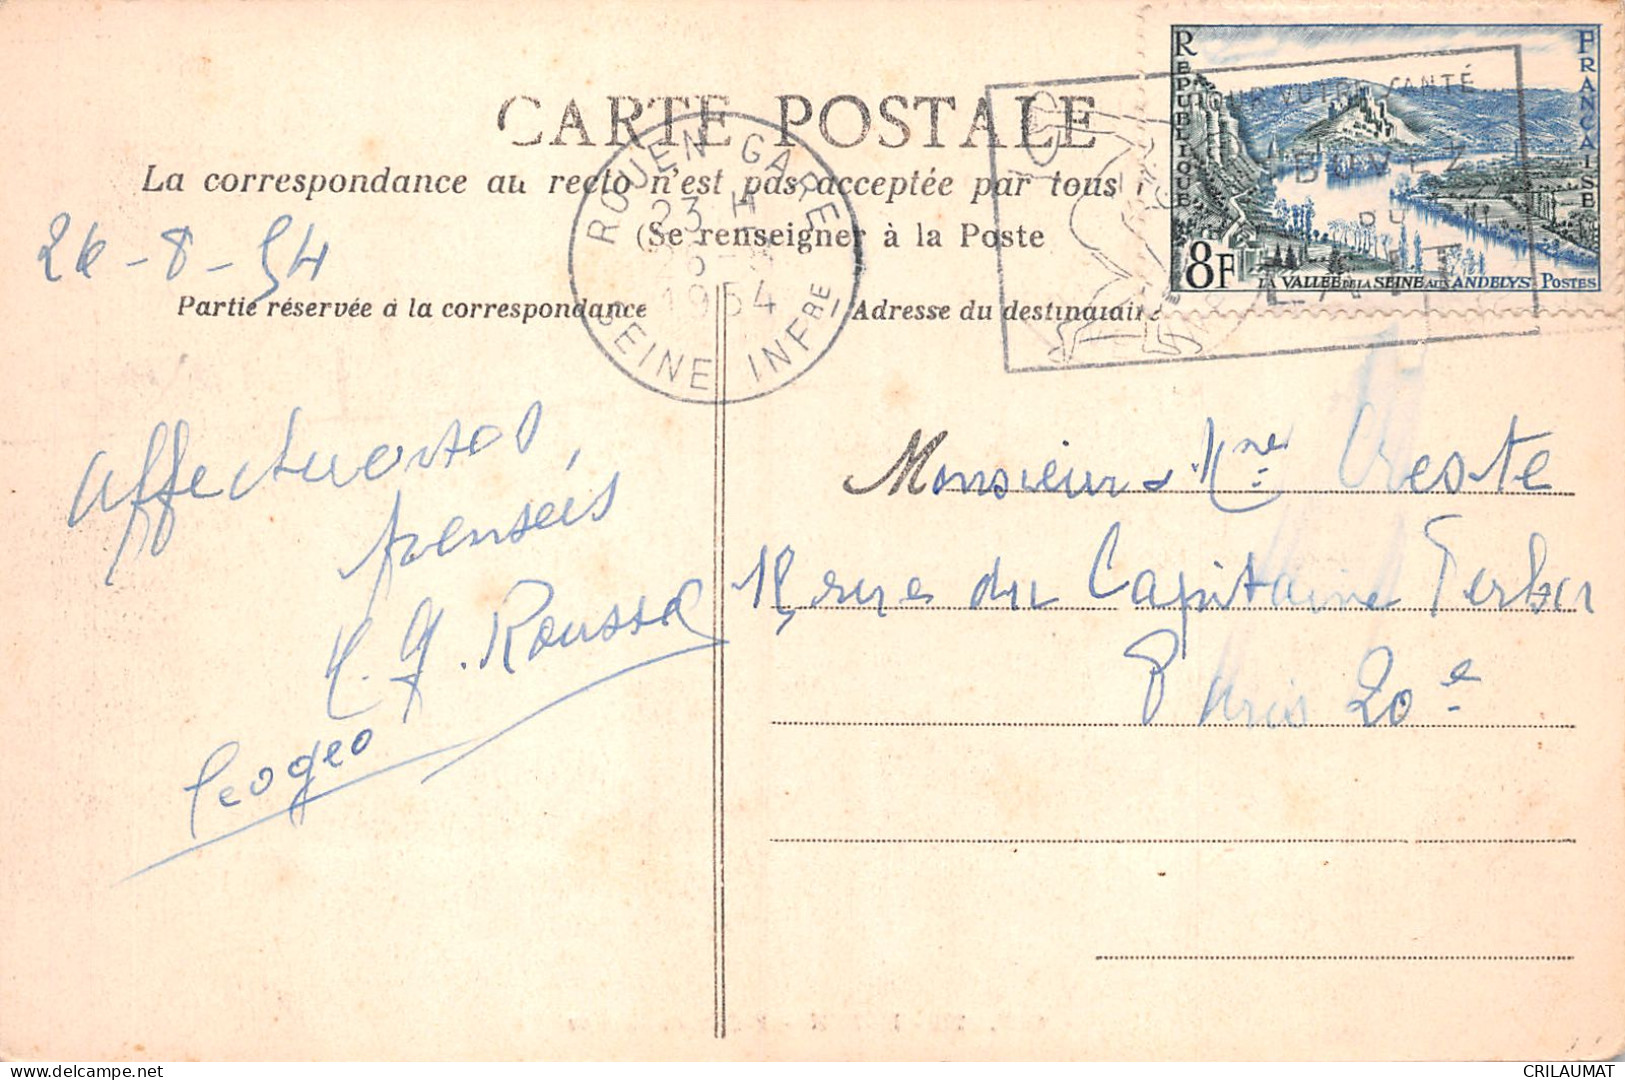 CARTE POSTALE
La correspondance au recto n'est pas acceptée par tous
(Se renseigner à la Poste
26-8-54
Partie réservée à la correspondance
Adresse du destinataire
ROUEN GARE
23 H
1954
SEINE INFRE
POUR VOTRE SANTÉ...
BUVEZ
DU
LAIT
REPUBLIQUE
FRANÇAISE
8F
LA VALLÉE DE LA SEINE AUX ANDELYS POSTES
Affectueuses
pensées
Monsieur & Mme Oreste
rue du Capitaine Ferber
Paris 20e
CRILAUMAT